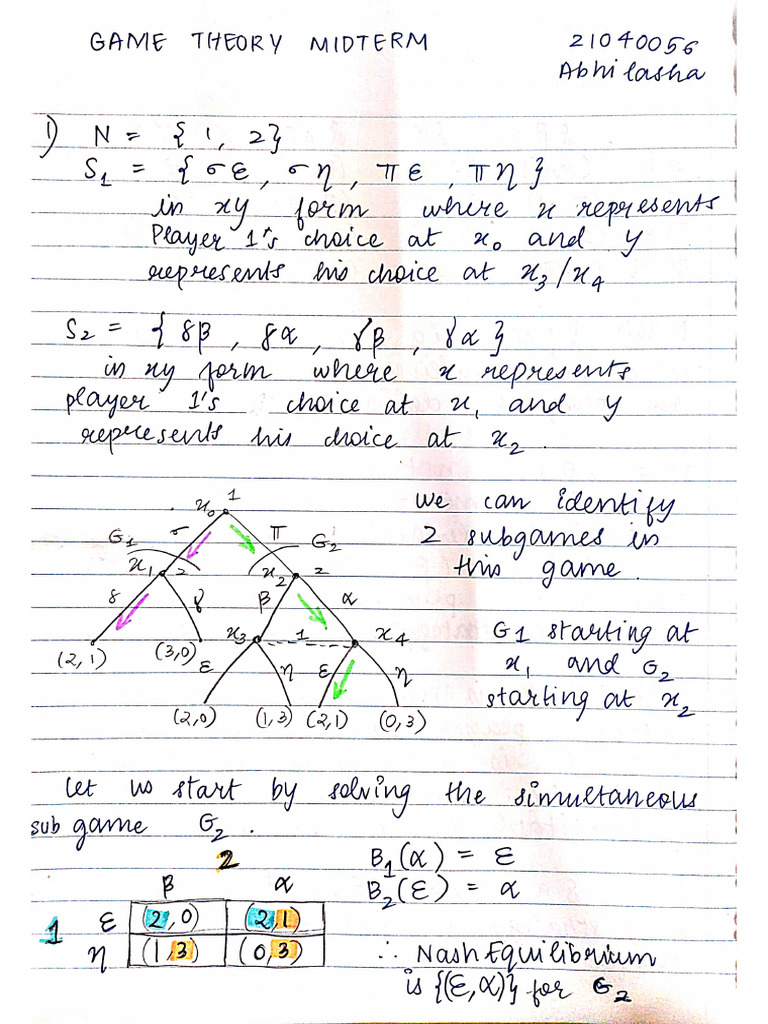 GAME THEORY MIDTERM 21040056
Abhilasha
1) N = {1, 2}
S₁ = {σε, ση, πε, πη}
in xy form where x represents
Player 1's choice at x₀ and y
represents his choice at x₃/x₄
S₂ = {δβ, δα, γβ, γα}
in xy form where x represents
player 1's choice at x₁ and y
represents his choice at x₂.
1
x₀
σ π
G₁ G₂
x₁ 2 x₂ 2
δ γ β α
x₃ 1 x₄
(2,1) (3,0) ε η ε η
(2,0) (1,3) (2,1) (0,3)
We can identify
2 subgames in
this game.
G1 starting at
x₁ and G₂
starting at x₂
Let us start by solving the simultaneous
sub game G₂.
2
β α
1 ε (2,0) (2,1)
η (1,3) (0,3)
B₁(α) = ε
B₂(ε) = α
∴ Nash Equilibrium
is {(ε,α)} for G₂